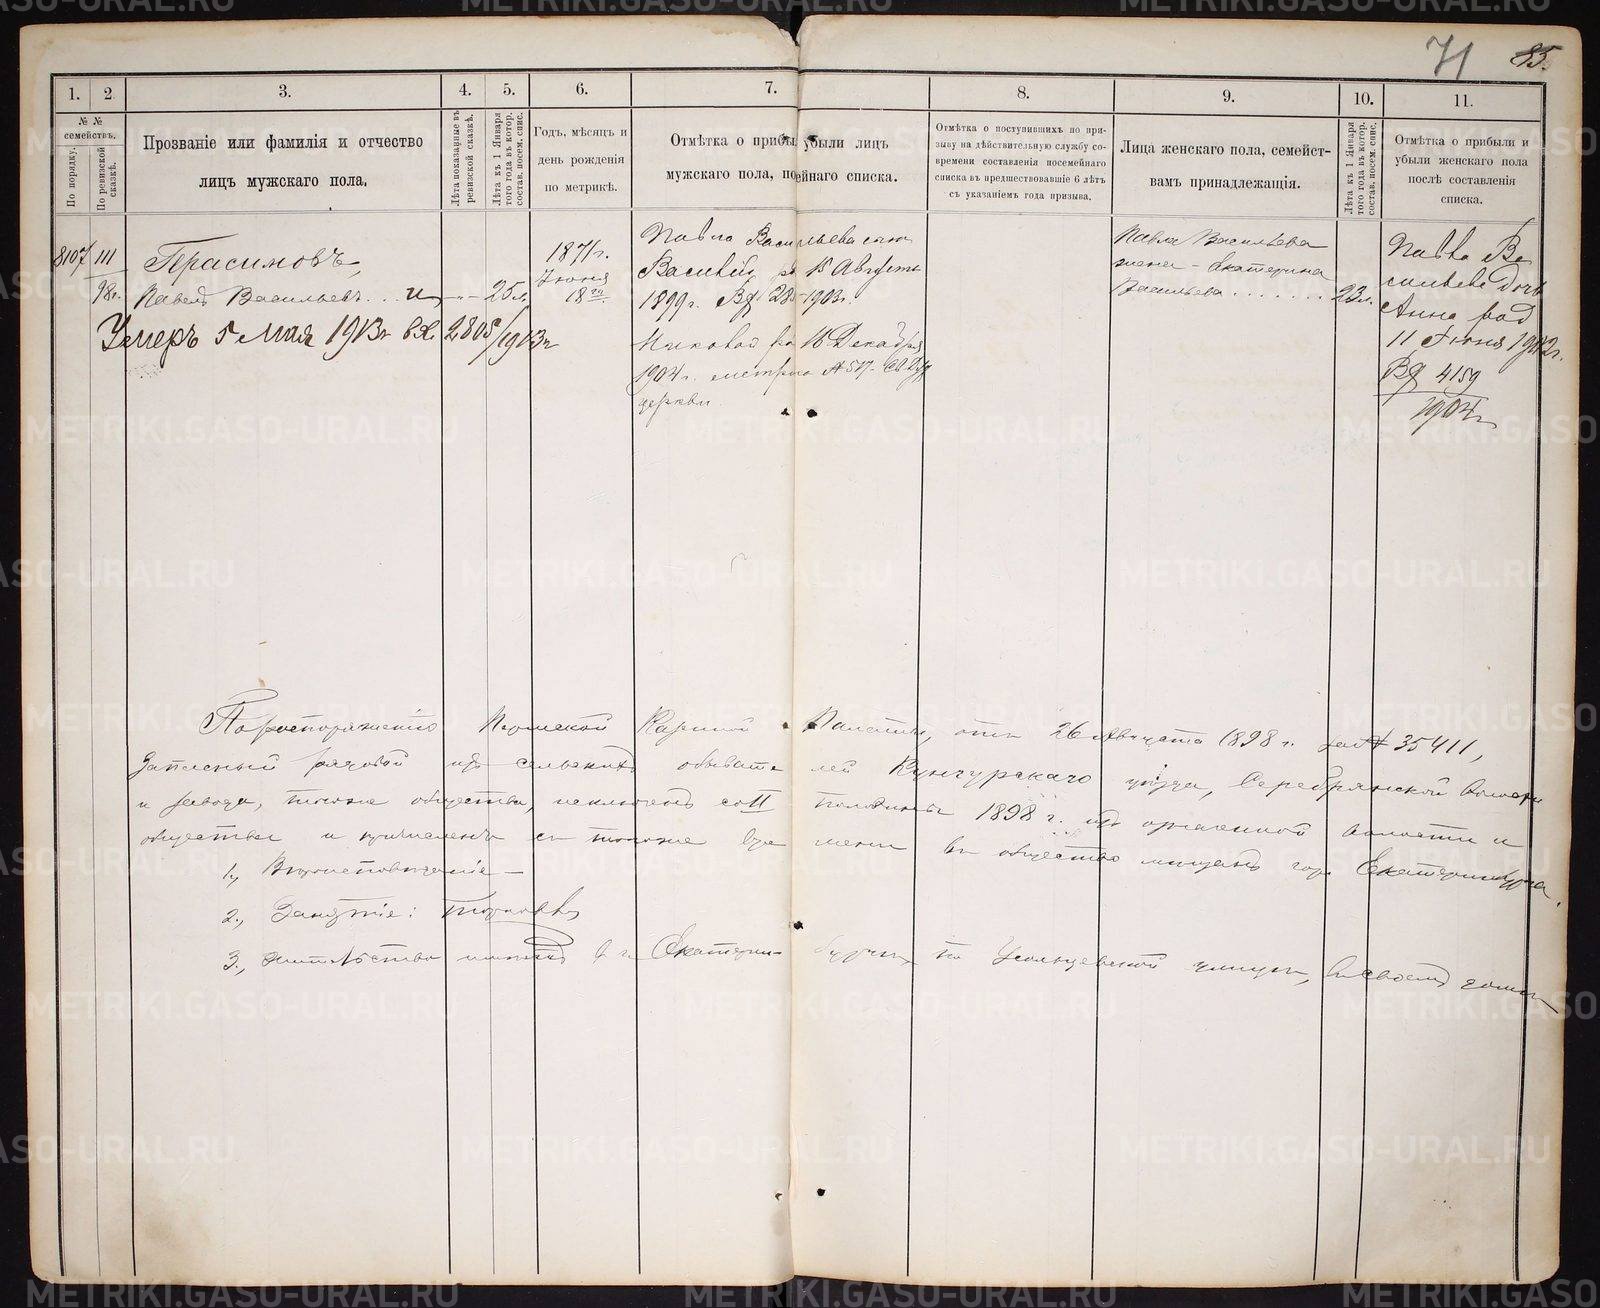 71 85.
1. 2 3. 4. 5. 6. 7. 8. 9. 10. 11.
№ № семействъ.
По порядку.
По ревизской сказкѣ.
Прозваніе или фамилія и отчество
лицъ мужскаго пола.
Лѣта показанныя въ ревизской сказкѣ.
Лѣта къ 1 Января того года въ котор. состав. посем. спис.
Годъ, мѣсяцъ и
день рожденія
по метрикѣ.
Отмѣтка о прибы убыли лицъ
мужскаго пола, по ейнаго списка.
Отмѣтка о поступившихъ по при-
зыву на дѣйствительную службу со-
времени составленія посемейнаго
списка въ предшествовавшіе 6 лѣтъ
съ указаніемъ года призыва.
Лица женскаго пола, семейст-
вамъ принадлежащія.
Лѣта къ 1 Января того года въ котор. состав. посем. спис.
Отмѣтка о прибыли и
убыли женскаго пола
послѣ составленія
списка.
8107 111
98г.
Герасимовъ,
Павелъ Васильевъ
25 л.
Умеръ 5 Мая 1913г. 2805/1913г
1871г.
Іюня
18
Павла Васильева сынъ
Василій р. 15 Августа
1899г. Вд 28 1903г.
Николай ро 16 Декабря
1904г. метрика № 517
церкви
Павла Васильева
жена - Екатерина
Васильева 23 л.
Павла Ва
сильева дочь
Анна род
11 Іюня 1902г.
Вд 4159
1904г
По распоряженію Пермской Казенной Палаты, отъ 26 Августа 1898 г. за № 35411,
Запасный рядовой изъ сельскихъ обывателей Кунгурскаго уѣзда, Серебрянской волости
и завода, того же общества, исключенъ со II половины 1898 г. изъ означенной волости и
общества и причисленъ съ того же времени въ общество мѣщанъ гор. Екатеринбурга.
1., Вѣроисповѣданіе —
2., Занятіе: торговля
3., жительство имѣетъ въ г. Екатеринбургѣ, по Усольцевской улицѣ, въ своемъ домѣ
METRIKI.GASO-URAL.RU